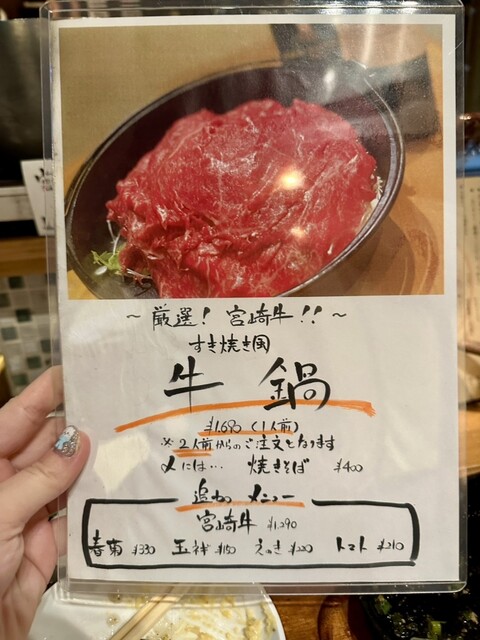 ～ 厳選! 宮崎牛!! ～
すき焼き風
牛 鍋
¥1,690 (1人前)
※ 2人前からのご注文となります
〆には… 焼きそば ¥400
追加 メニュー
宮崎牛 ¥1,290
春菊 ¥330 玉ネギ ¥150 えのき ¥200 トマト ¥210